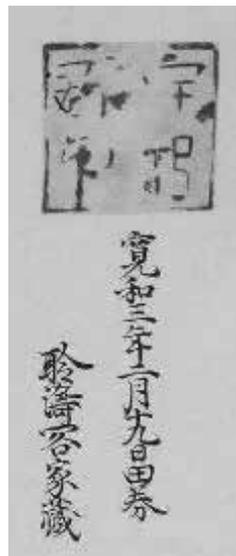 寛和三年二月廿九日田券
聆濤閣家藏